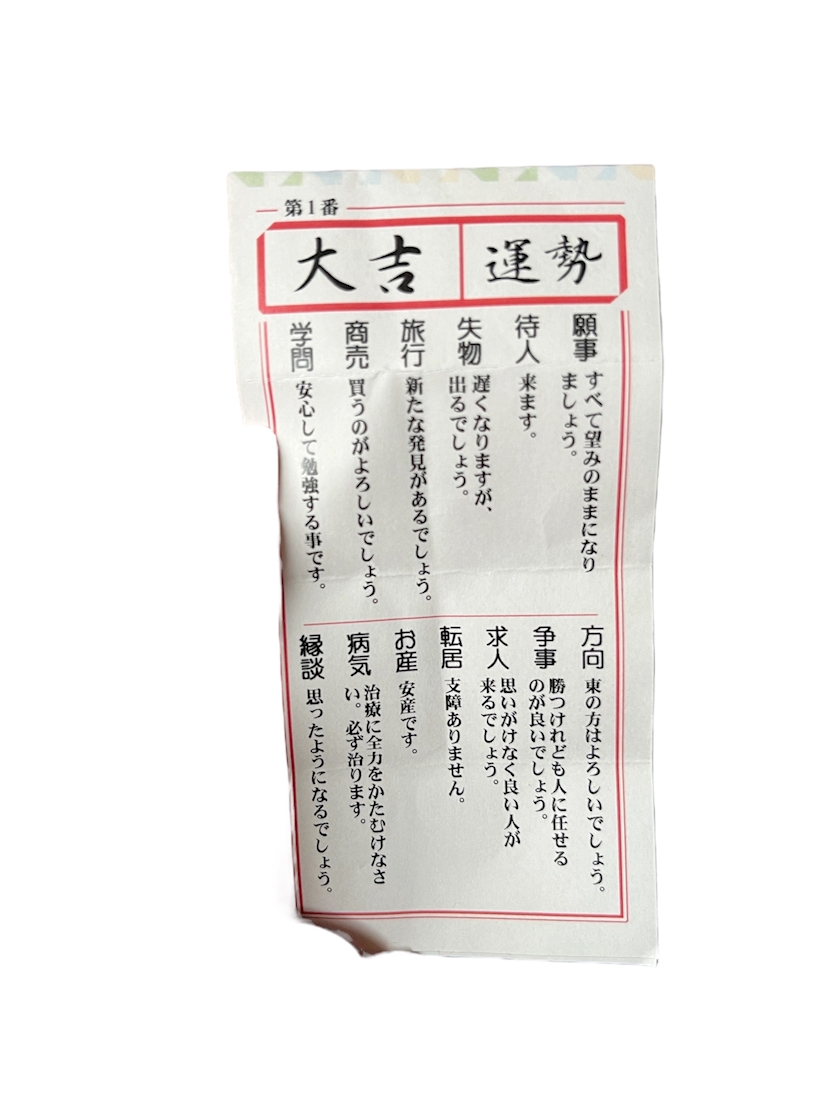 第1番
大吉
運勢
願事 すべて望みのままになり
ましょう。
待人 来ます。
失物 遅くなりますが、
出るでしょう。
旅行 新たな発見があるでしょう。
商売 買うのがよろしいでしょう。
学問 安心して勉強する事です。
方向 東の方はよろしいでしょう。
争事 勝つけれども人に任せる
のが良いでしょう。
求人 思いがけなく良い人が
来るでしょう。
転居 支障ありません。
お産 安産です。
病気 治療に全力をかたむけなさ
い。必ず治ります。
縁談 思ったようになるでしょう。